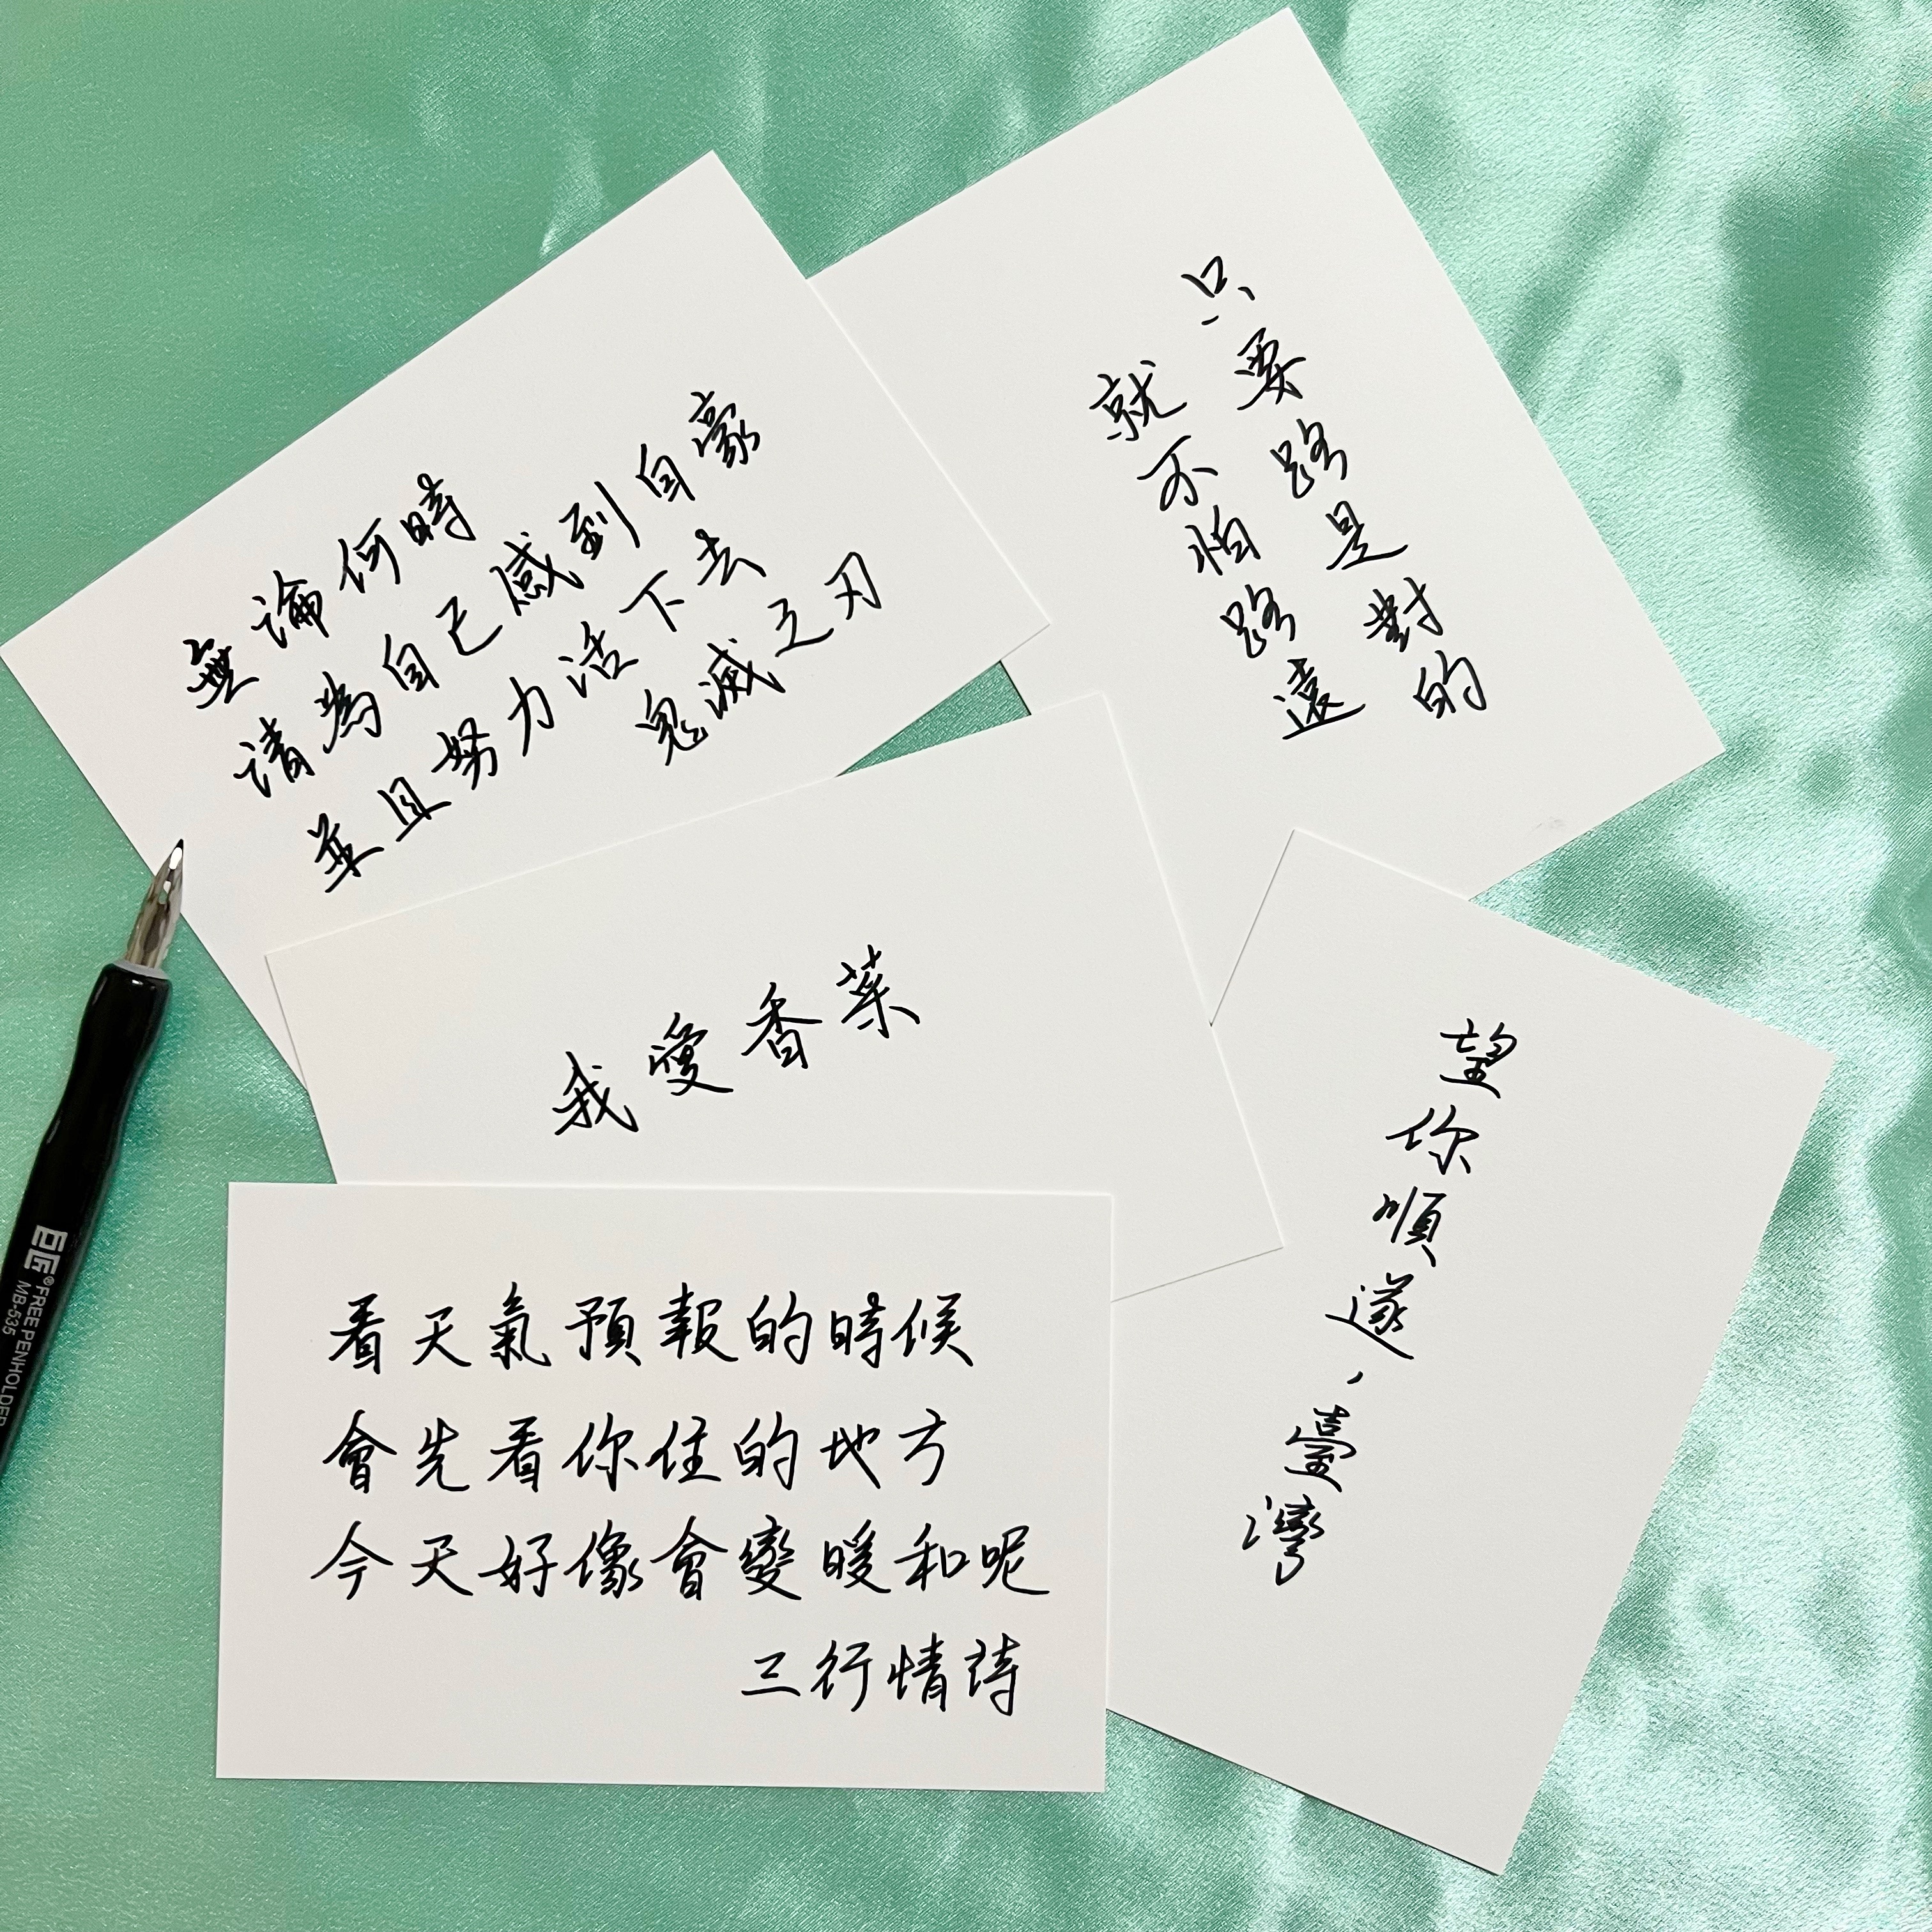 無論何時
請為自己感到自豪
並且努力活下去
鬼滅之刃
只要路是對的
就不怕路遠
我愛香菜
望你順遂，臺灣
看天氣預報的時候
會先看你住的地方
今天好像會變暖和呢
三行情詩
巨匠®FREE PENHOLDER
MB-535